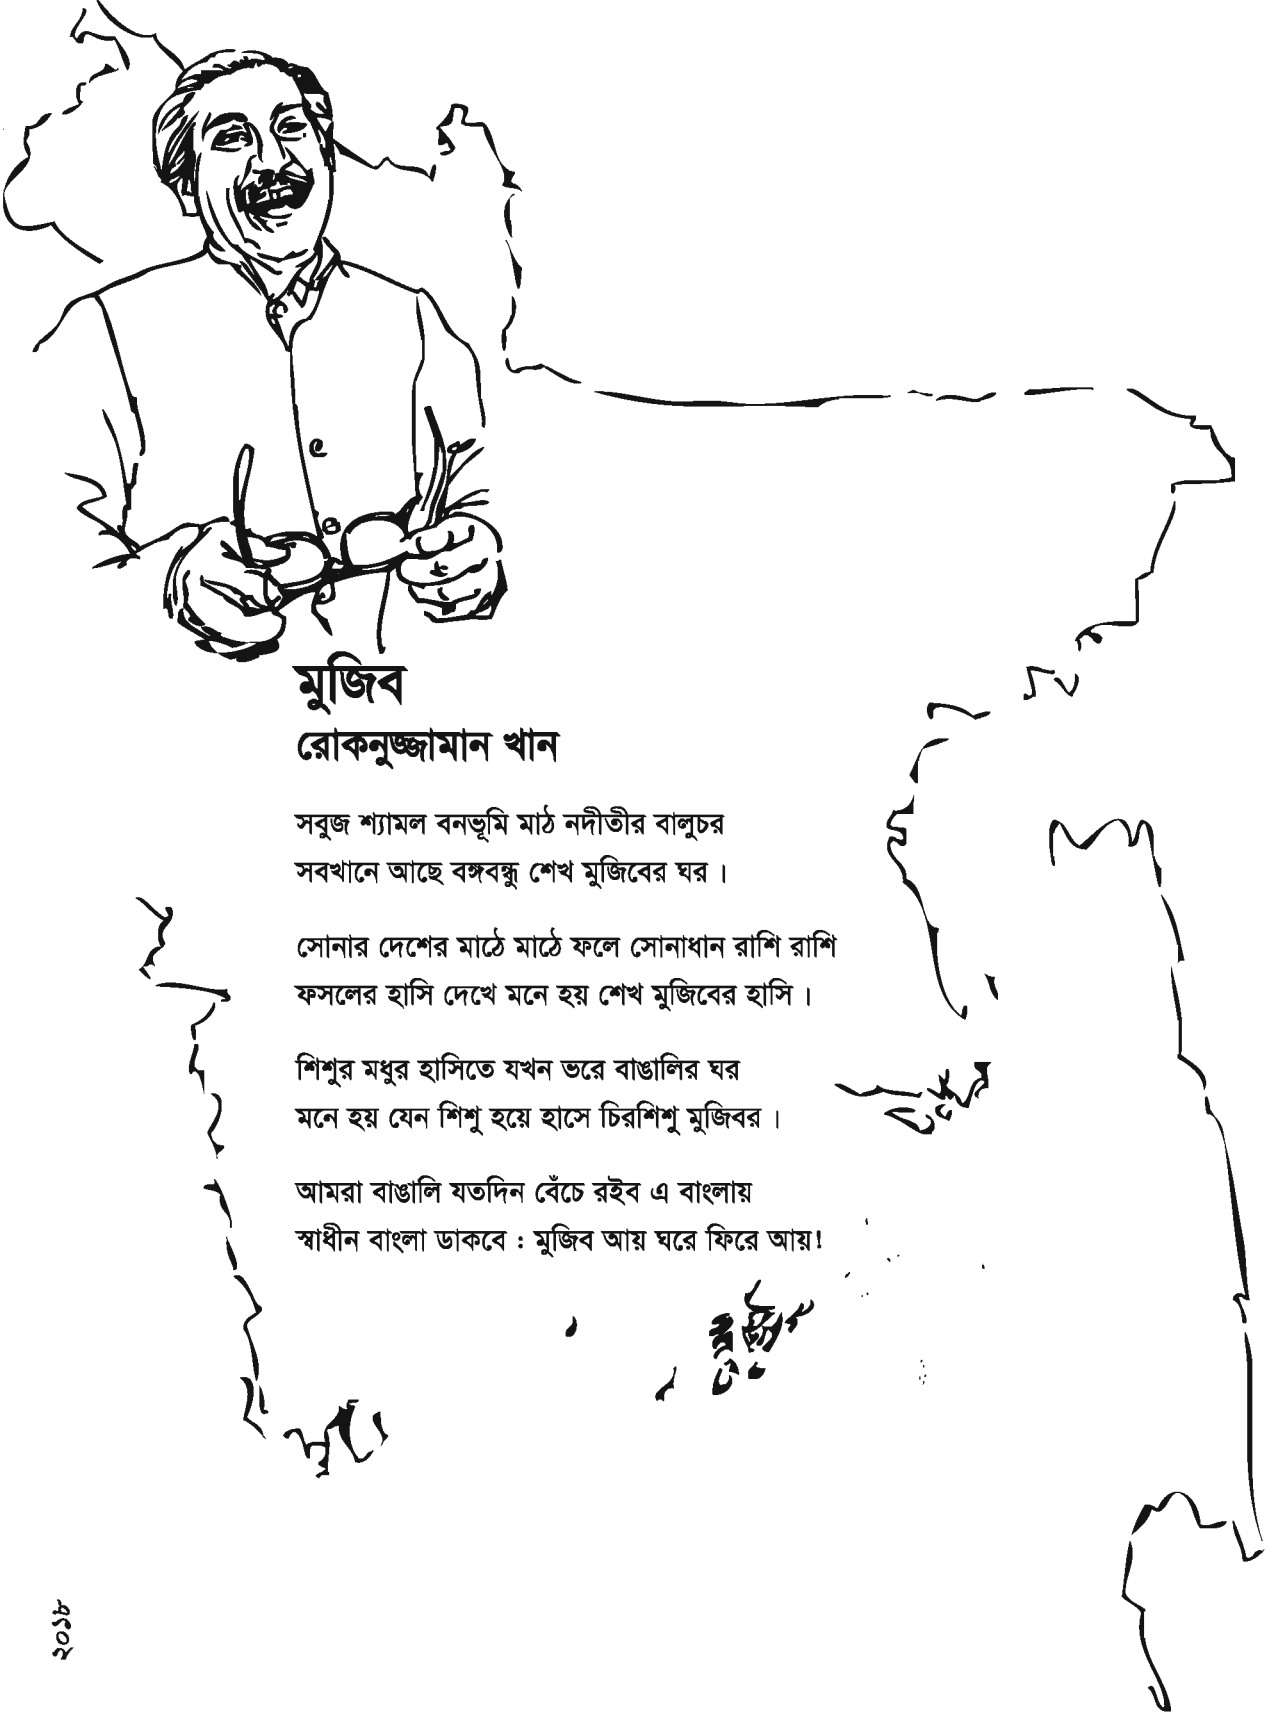 মুজিব
রোকনুজ্জামান খান
সবুজ শ্যামল বনভূমি মাঠ নদীতীর বালুচর
সবখানে আছে বঙ্গবন্ধু শেখ মুজিবের ঘর ।
সোনার দেশের মাঠে মাঠে ফলে সোনাধান রাশি রাশি
ফসলের হাসি দেখে মনে হয় শেখ মুজিবের হাসি ।
শিশুর মধুর হাসিতে যখন ভরে বাঙালির ঘর
মনে হয় যেন শিশু হয়ে হাসে চিরশিশু মুজিবর ।
আমরা বাঙালি যতদিন বেঁচে রইব এ বাংলায়
স্বাধীন বাংলা ডাকবে : মুজিব আয় ঘরে ফিরে আয়!
২০১৮